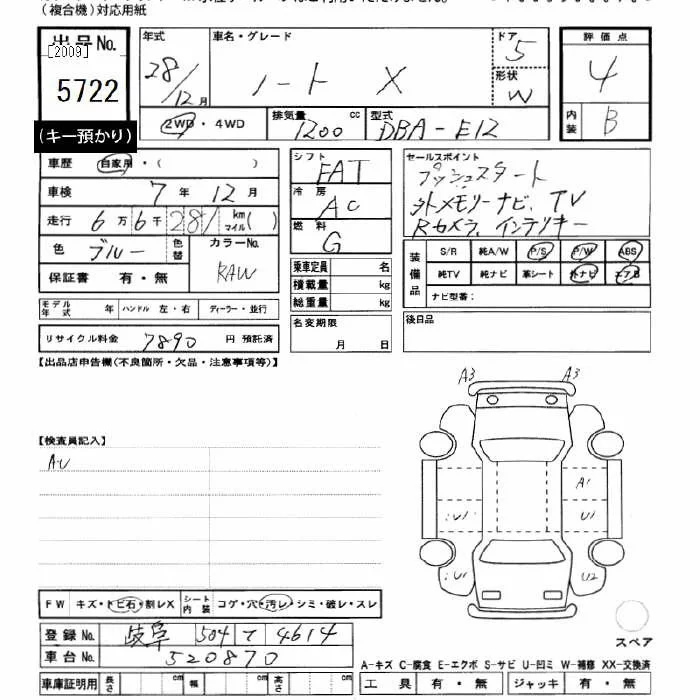 （複合機）対応用紙
出品No.
[2009]
5722
(キー預かり)
年式 車名・グレード ドア 評価点
28/12月 ノート X 5 4
形状 W
2WD・4WD 排気量 1200 cc 型式 DBA-E12 内装 B
車歴 自家用・( )
車検 7年 12月
走行 6万 6千 281 km マイル( )
色 ブルー 色替 カラーNo. RAW
保証書 有・無
モデル年式 年 ハンドル 左・右 ディーラー・並行
リサイクル料金 7890 円 預託済
シフト FAT
冷房 AC
燃料 G
乗車定員 名
積載量 kg
総重量 kg
名変期限 月 日
セールスポイント
プッシュスタート
外メモリーナビ、TV
Rカメラ、インテリキー
装備品 S/R 純A/W P/S P/W ABS
純TV 純ナビ 革シート 外ナビ エアB
ナビ型番：
後日品
【出品店申告欄(不良箇所・欠品・注意事項等)】
【検査員記入】
AU
A3 A3
A1
U1 U1
U1 U2
スペア
FW キズ・トビ石・割レX シート内装 コゲ・穴・汚レ・シミ・破レ・スレ
登録No. 岐阜 504 て 4614
車台No. 520870
車庫証明用 長さ cm 幅 cm 高さ cm
A-キズ C-腐食 E-エクボ S-サビ U-凹ミ W-補修 XX-交換済
工具 有・無 ジャッキ 有・無